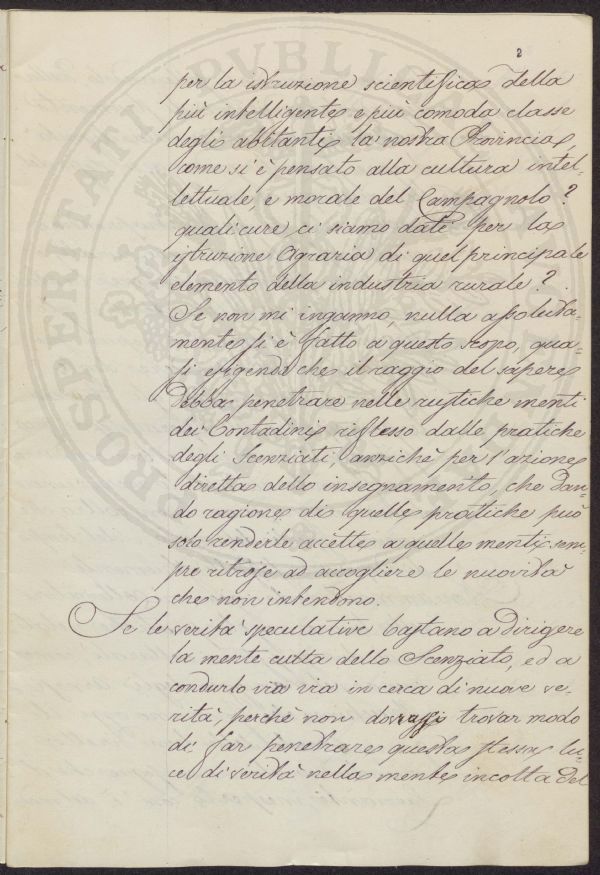 2
per la istruzione scientifica della
più intelligente e più comoda classe
degli abitanti la nostra Provincia,
come si è pensato alla cultura intel-
lettuale, e morale del Campagnolo?
quali cure ci siamo date per la
istruzione Agraria di quel principale
elemento della industria rurale?
Se non mi inganno, nulla assoluta-
mente si è fatto a questo scopo, qua-
si esigendo che il raggio del sapere
debba penetrare nelle rustiche menti
dei Contadini riflesso dalle pratiche
degli Scenziati, anzichè per l'azione
diretta dello insegnamento, che dan-
do ragione di quelle pratiche può
solo renderle accette a quelle menti sem-
pre ritrose ad accogliere le nuovità
che non intendono.
Se le verità speculative bastano a dirigere
la mente culta dello Scenziato, ed a
condurlo via via in cerca di nuove ve-
rità, perchè non dovrassi trovar modo
di far penetrare questa stessa lu-
ce di verità nella mente incolta del
PROSPERITATI REIPUBLICAE